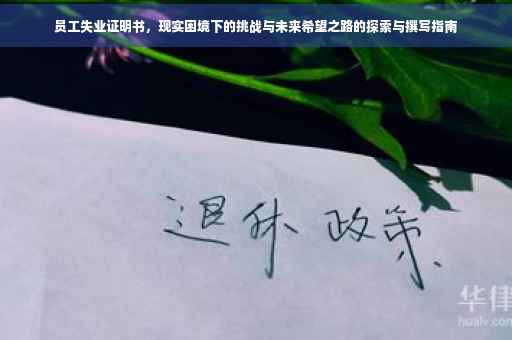 员工失业证明书，现实困境下的挑战与未来希望之路的探索与撰写指南
退休 政策
华律
hualv.com